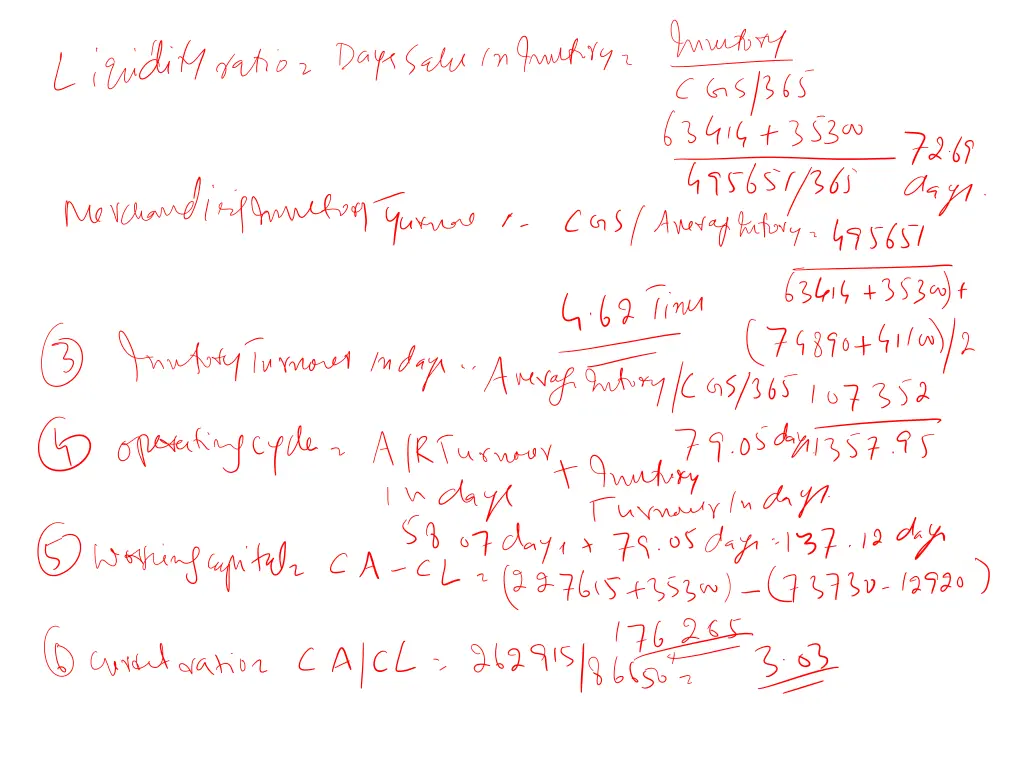 Liquidity ratio = Days Sales in Inventory = Inventory
CGS/365
63414 + 35300
495651/365
72.69 days.
Merchandising Inventory Turnover :- CGS / Average Inventory = 495651
(63414 + 35300) +
(74890 + 41100)/2
4.62 Times
③ Inventory Turnover in days :- Average Inventory/CGS/365 107352
1357.95
79.05 days
④ Operating cycle = A/R Turnover in days + Inventory Turnover in days
58.07 days + 79.05 days = 137.12 days
⑤ Working capital = CA - CL = (227615 + 35300) - (73730 - 12920)
176265
⑥ Current ratio = CA/CL = 262915/86650 = 3.03